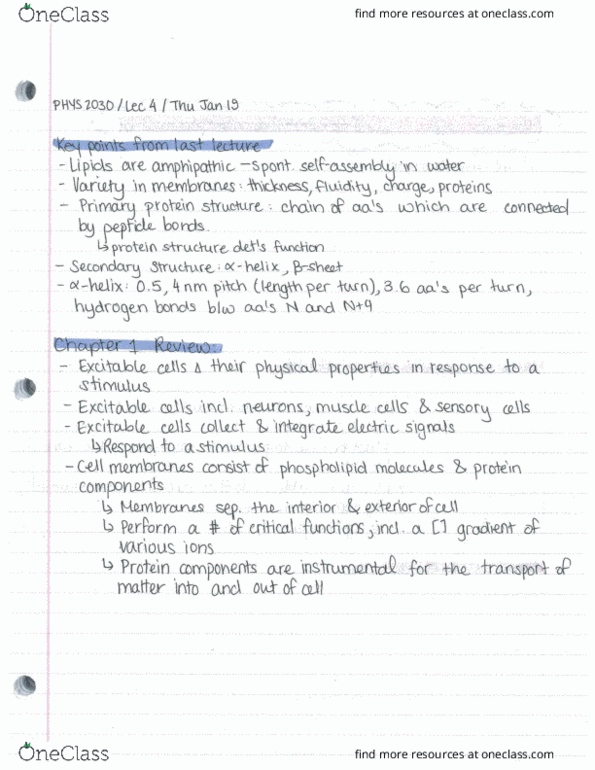 OneClass
find more resources at oneclass.com
PHYS 2030 / Lec 4 / Thu Jan 19
Key points from last lecture
- Lipids are amphipathic - spont. self-assembly in water
- Variety in membranes: thickness, fluidity, charge, proteins
- Primary protein structure: chain of aa's which are connected
by peptide bonds.
↳ protein structure det's function
- Secondary structure: α-helix, β-sheet
- α-helix: 0.5, 4 nm pitch (length per turn), 3.6 aa's per turn,
hydrogen bonds b/w aa's N and N+4
Chapter 1 Review:
- Excitable cells Δ their physical properties in response to a
stimulus
- Excitable cells incl. neurons, muscle cells & sensory cells
- Excitable cells collect & integrate electric signals
↳ Respond to a stimulus
- Cell membranes consist of phospholipid molecules & protein
components
↳ Membranes sep. the interior & exterior of cell
↳ Perform a # of critical functions, incl. a [] gradient of
various ions
↳ Protein components are instrumental for the transport of
matter into and out of cell
OneClass
find more resources at oneclass.com